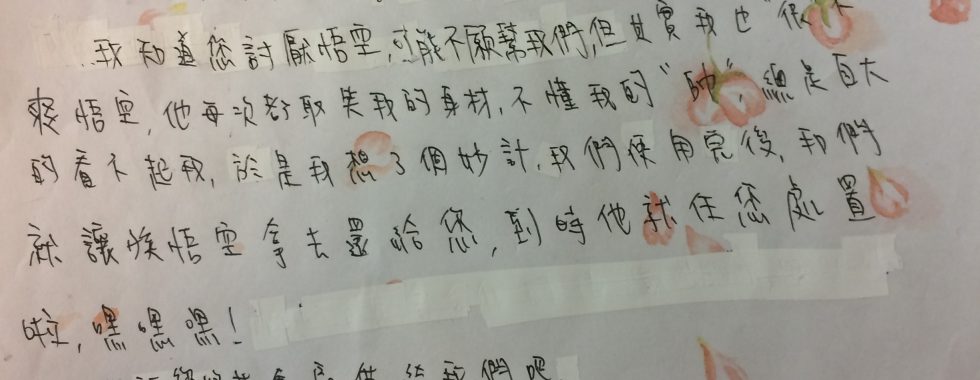 我知道您討厭悟空,可能不願幫我們,但其實我也“很不
爽悟空,他每次都取笑我的身材,不懂我的“帥”,總是自大
的看不起我,於是我想了個妙計,我們使用完後,我們
就讓悟空拿去還給您,到時他就任您處置
啦,嘿嘿嘿!
我們吧